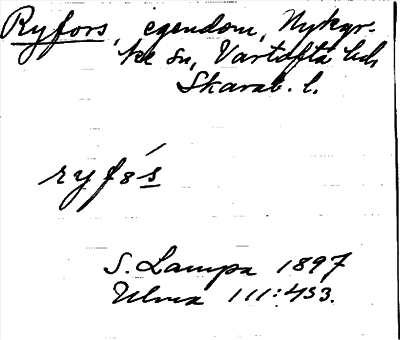 Ryfors, egendom, Nykyr-
ke sn, Vartofta hd,
Skarab. l.
ryfó̱s
S. Lampa 1897
Ulma 111:433.